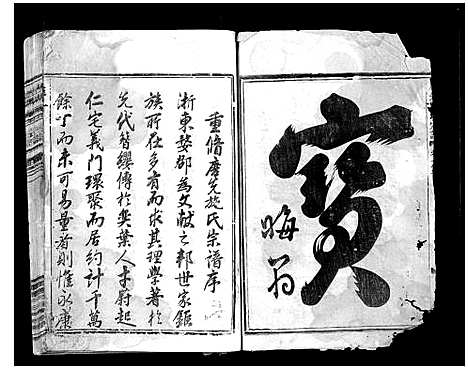 寶
晦翁
重脩庠先施氏宗譜序
浙東婺郡為文献之邦世家鉅
族所在多有而求其理學著於
先代簪纓傳於奕葉人才蔚起
仁宅義門環聚而居約計千萬
餘 而未可易量者則惟永康